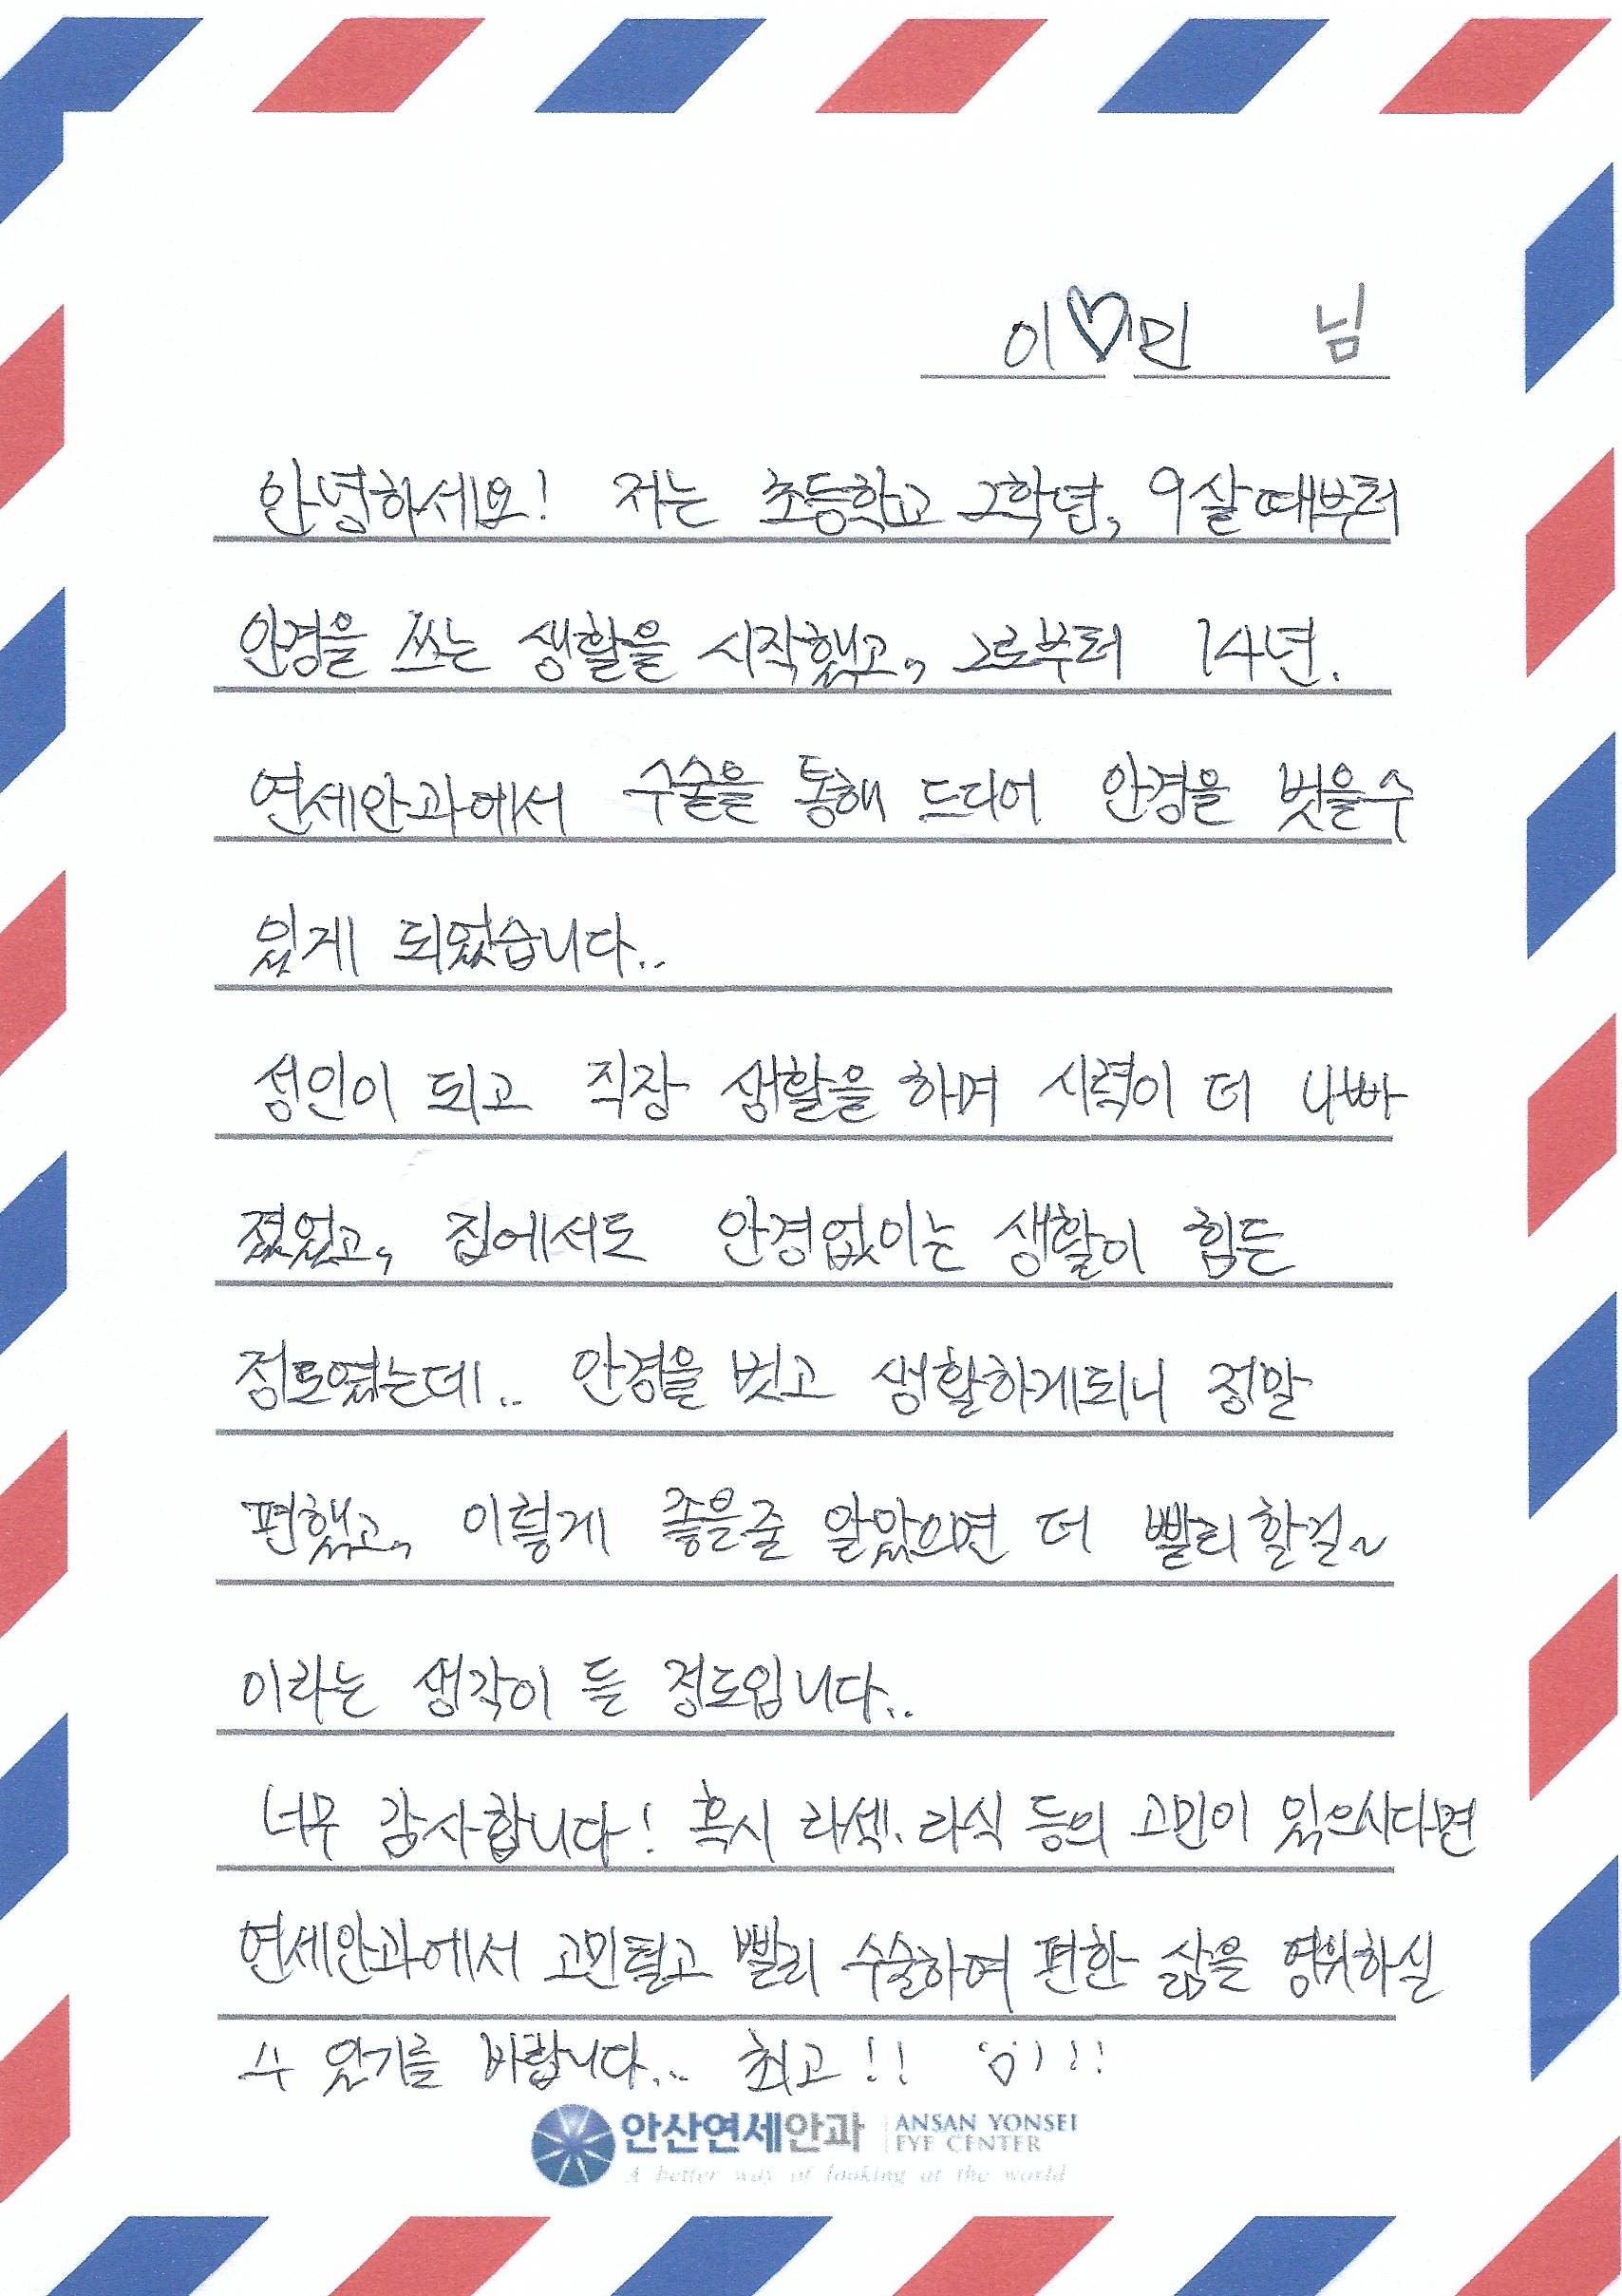 이♡민 님
안녕하세요! 저는 초등학교 2학년, 9살때부터
안경을 쓰는 생활을 시작했고, 그로부터 14년.
연세안과에서 수술을 통해 드디어 안경을 벗을수
있게 되었습니다..
성인이 되고 직장 생활을 하며 시력이 더 나빠
졌었고, 집에서도 안경없이는 생활이 힘든
정도였는데.. 안경을 벗고 생활하게되니 정말
편했고, 이렇게 좋을줄 알았으면 더 빨리할걸~
이라는 생각이 들 정도입니다..
너무 감사합니다! 혹시 라섹, 라식 등의 고민이 있으시다면
연세안과에서 고민털고 빨리 수술하여 편한 삶을 영위하실
수 있기를 바랍니다... 최고!!
안산연세안과 ANSAN YONSEI
EYE CENTER
A better way of looking at the world